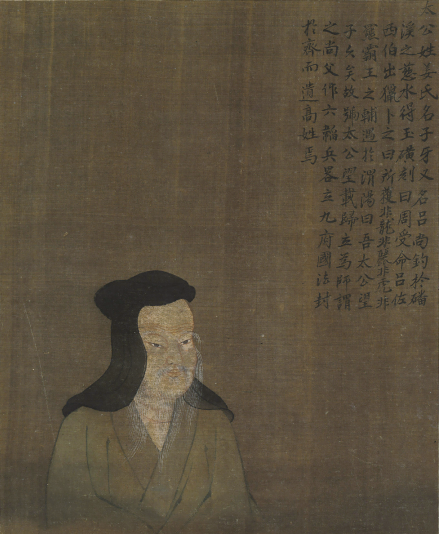 太公姓姜氏名子牙又名呂尚釣於磻
溪之茲水得玉璜刻曰周受命呂佐
西伯出獵卜之曰所獲非龍非彲非虎非
羆霸王之輔遇於渭陽曰吾太公望
子久矣故號太公望載歸立為師謂
之尚父作六韜兵畧立九府圜法封
於齊而遺高姓焉